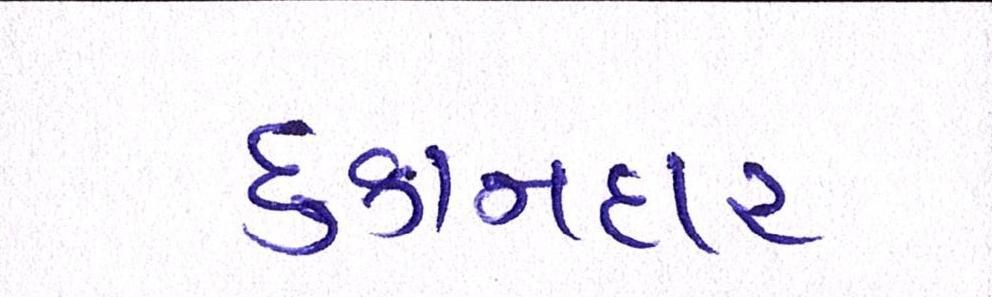 દુકાનદાર